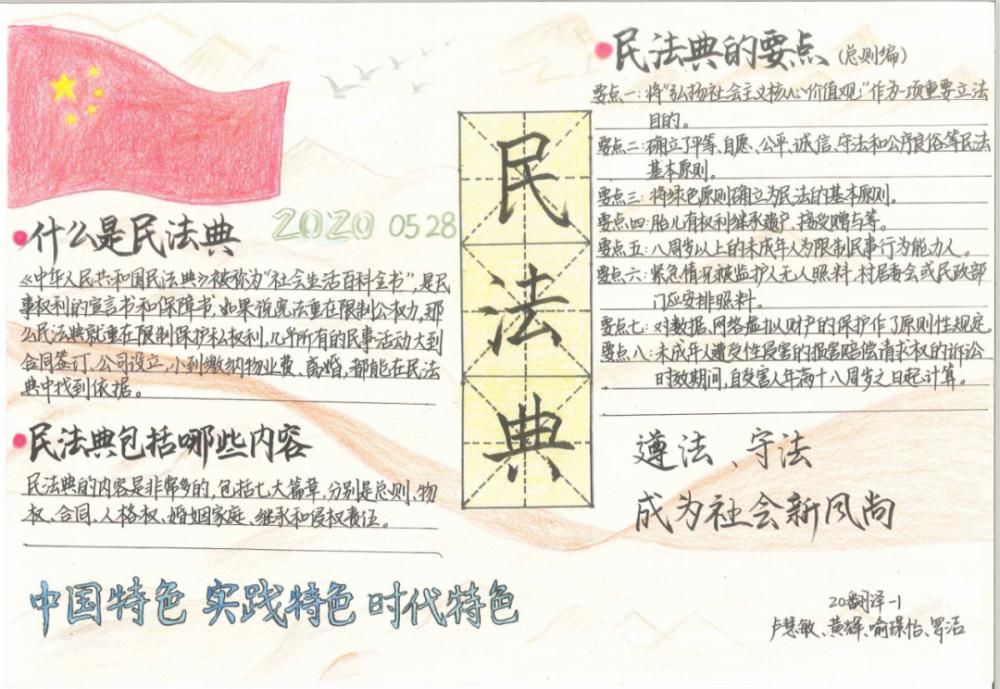 什么是民法典
《中华人民共和国民法典》被称为"社会生活百科全书",是民
事权利的宣言书和保障书,如果说宪法重在限制公权力,那
么民法典就重在限制保护私权利,几乎所有的民事活动大到
合同签订、公司设立,小到缴纳物业费、离婚,都能在民法
典中找到依据。
民法典包括哪些内容
民法典的内容是非常多的,包括七大篇章,分别是总则、物
权、合同、人格权、婚姻家庭、继承和侵权责任。
中国特色 实践特色 时代特色
2020 05 28
民
法
典
民法典的要点(总则编)
要点一:将"弘扬社会主义核心价值观"作为一项重要立法
目的。
要点二:确立了平等、自愿、公平、诚信、守法和公序良俗等民法
基本原则。
要点三:将绿色原则确立为民法的基本原则。
要点四:胎儿有权利继承遗产、接受赠与等。
要点五:八周岁以上的未成年人为限制民事行为能力人。
要点六:紧急情况被监护人无人照料,村居委会或民政部
门应安排照料。
要点七:对数据、网络虚拟财产的保护作了原则性规定。
要点八:未成年人遭受性侵害的损害赔偿请求权的诉讼
时效期间,自受害人年满十八周岁之日起计算。
遵法、守法
成为社会新风尚
20翻译-1
卢慧敏、黄辉、喻璟怡、罗洁